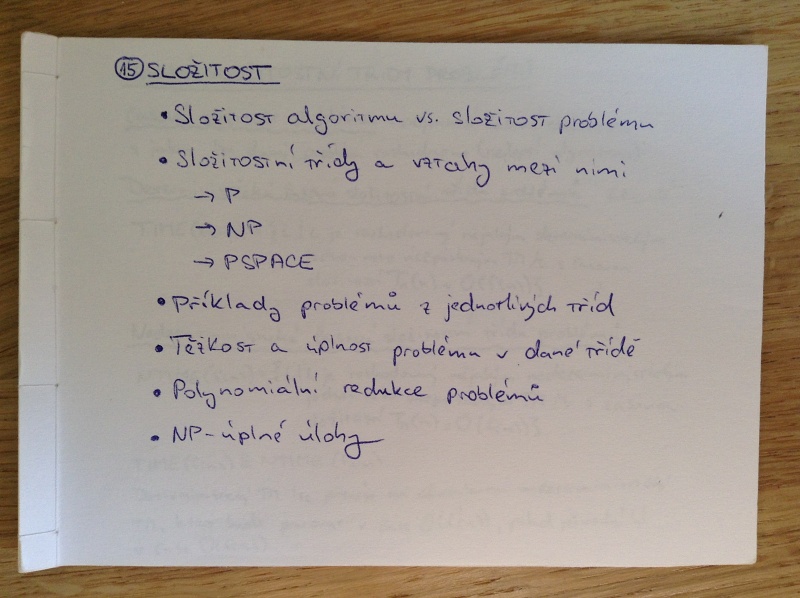 15 SLOŽITOST
• Složitost algoritmu vs. složitost problému
• Složitostní třídy a vztahy mezi nimi
→ P
→ NP
→ PSPACE
• Příklady problémů z jednotlivých tříd
• Těžkost a úplnost problému v dané třídě
• Polynomiální redukce problémů
• NP-úplné úlohy